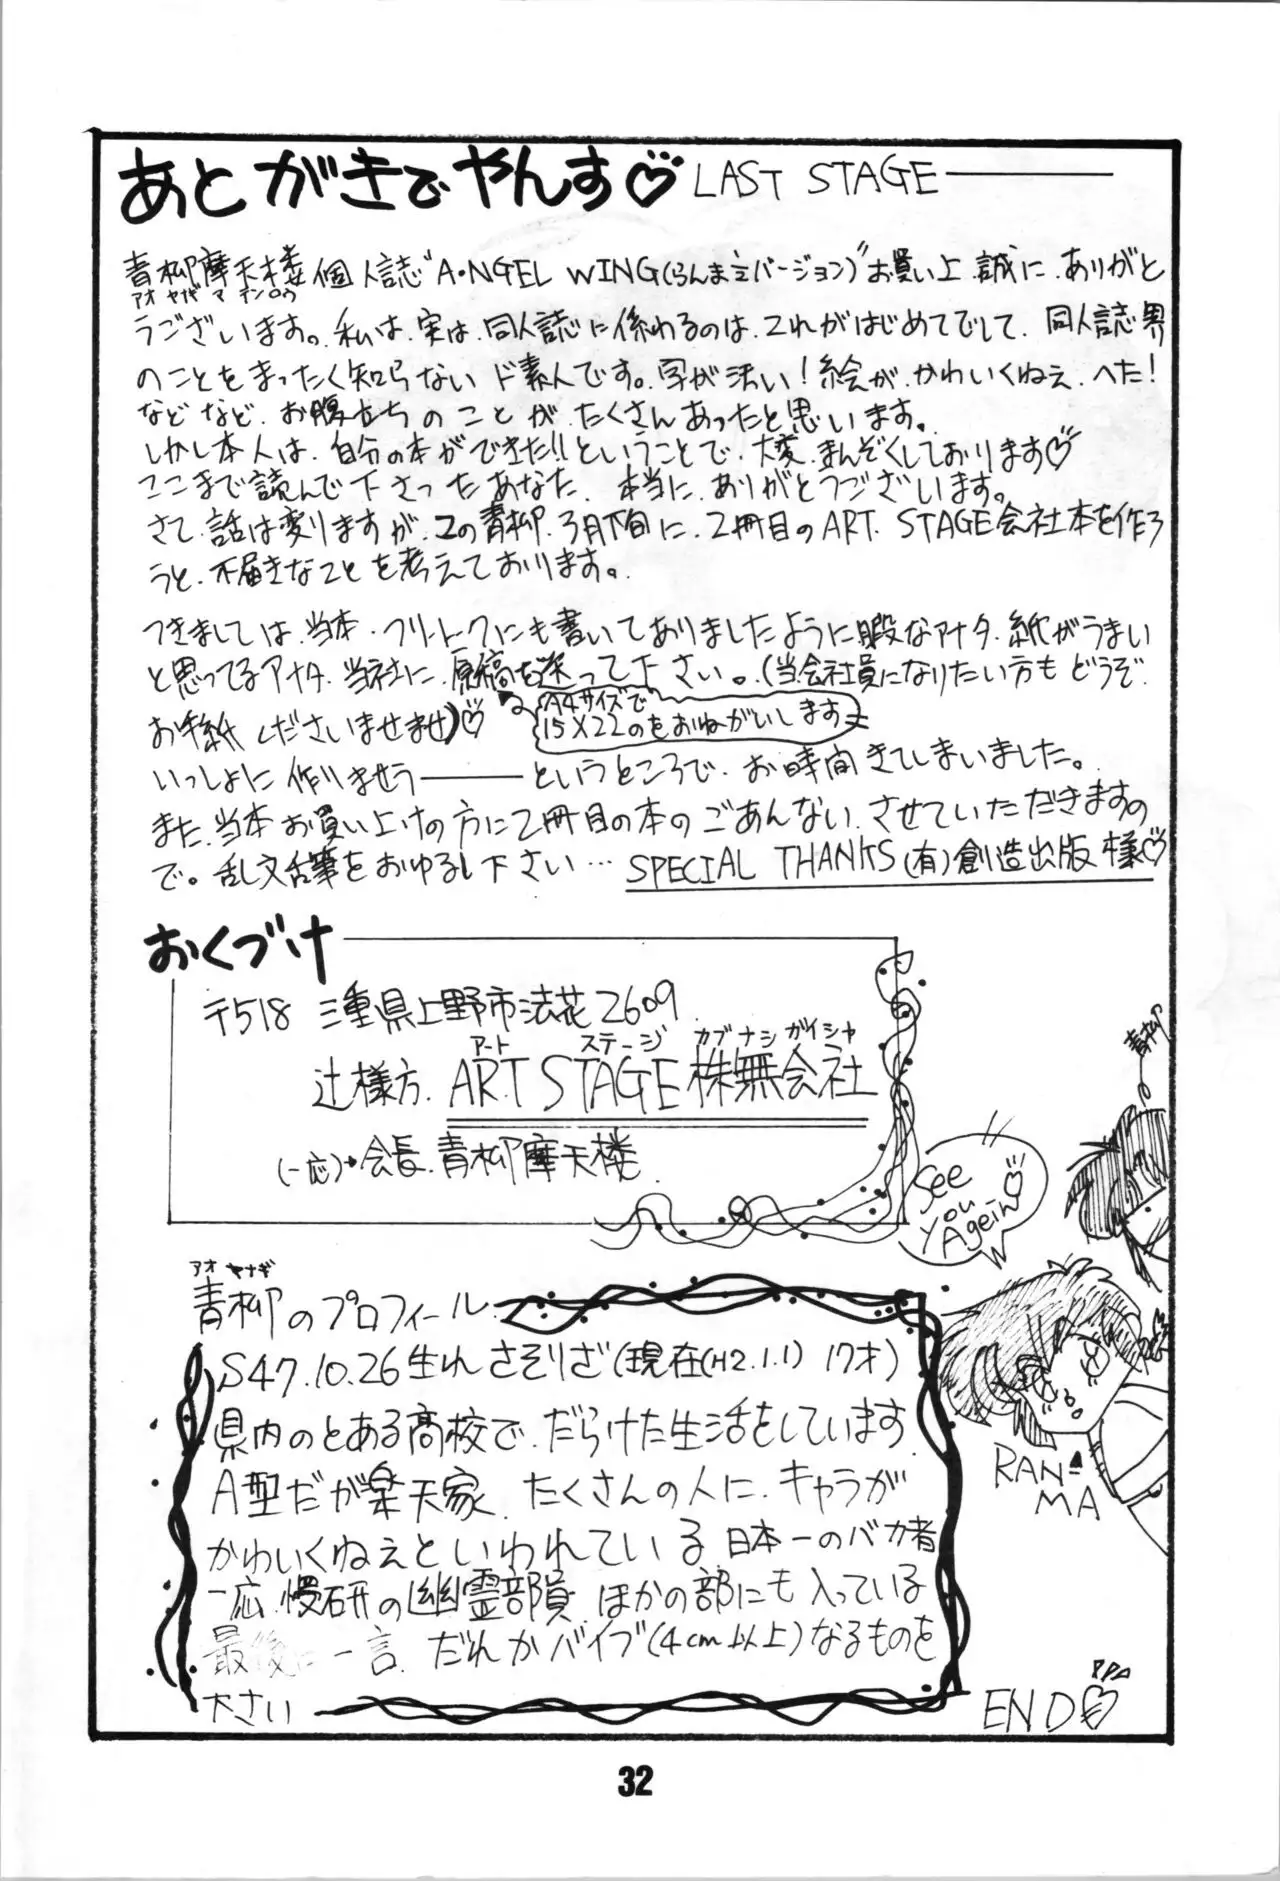 あとがきでやんす♡ LAST STAGE
青柳摩天楼個人誌“A・NGEL WING(らんま½バージョン)”お買い上、誠に、ありがと
アオヤギマテンロウ
うございます。私は、実は、同人誌に係わるのは、これがはじめてでして、同人誌界
のことをまったく知らないド素人です。字が汚い!絵が、かわいくねえ、へた!
などなど、お腹立ちのことが、たくさんあったと思います。
しかし本人は、自分の本ができた!!ということで、大変、まんぞくしております♡
ここまで読んで下さったあなた、本当に、ありがとうございます。
さて、話は変りますが、この青柳、3月下旬に、2冊目のART. STAGE会社本を作ろ
うと、不届きなことを考えております。
つきましては、当本・フリートークにも書いてありましたように暇なアナタ、紙がうまい
と思ってるアナタ、当社に、原稿を送って下さい。(当会社員になりたい方もどうぞ
お手紙くださいませませ)♡
A4サイズで
15×22のをおねがいします
いっしょに作りませう――というところで、お時間きてしまいました。
また、当本お買い上げの方に2冊目の本のごあんない、させていただきますの
で。乱文乱筆をおゆるし下さい… SPECIAL THANKS(有)創造出版様♡
おくづけ
〒518 三重県上野市法花2609
アート ステージ カブナシガイシャ
辻様方. ART STAGE株無会社
(一応)・会長、青柳摩天楼
青柳
See You Agein♡
アオヤナギ
青柳のプロフィール.
S47.10.26生れさそりざ(現在(H2.1.1) 17才)
県内のとある高校で、だらけた生活をしています
A型だが楽天家、たくさんの人に、キャラが
かわいくねえといわれている日本一のバカ者
一応、漫研の幽霊部員、ほかの部にも入っている
最後に一言、だれかバイブ(4cm以上)なるものを
下さい
RAN-MA
END♡
32